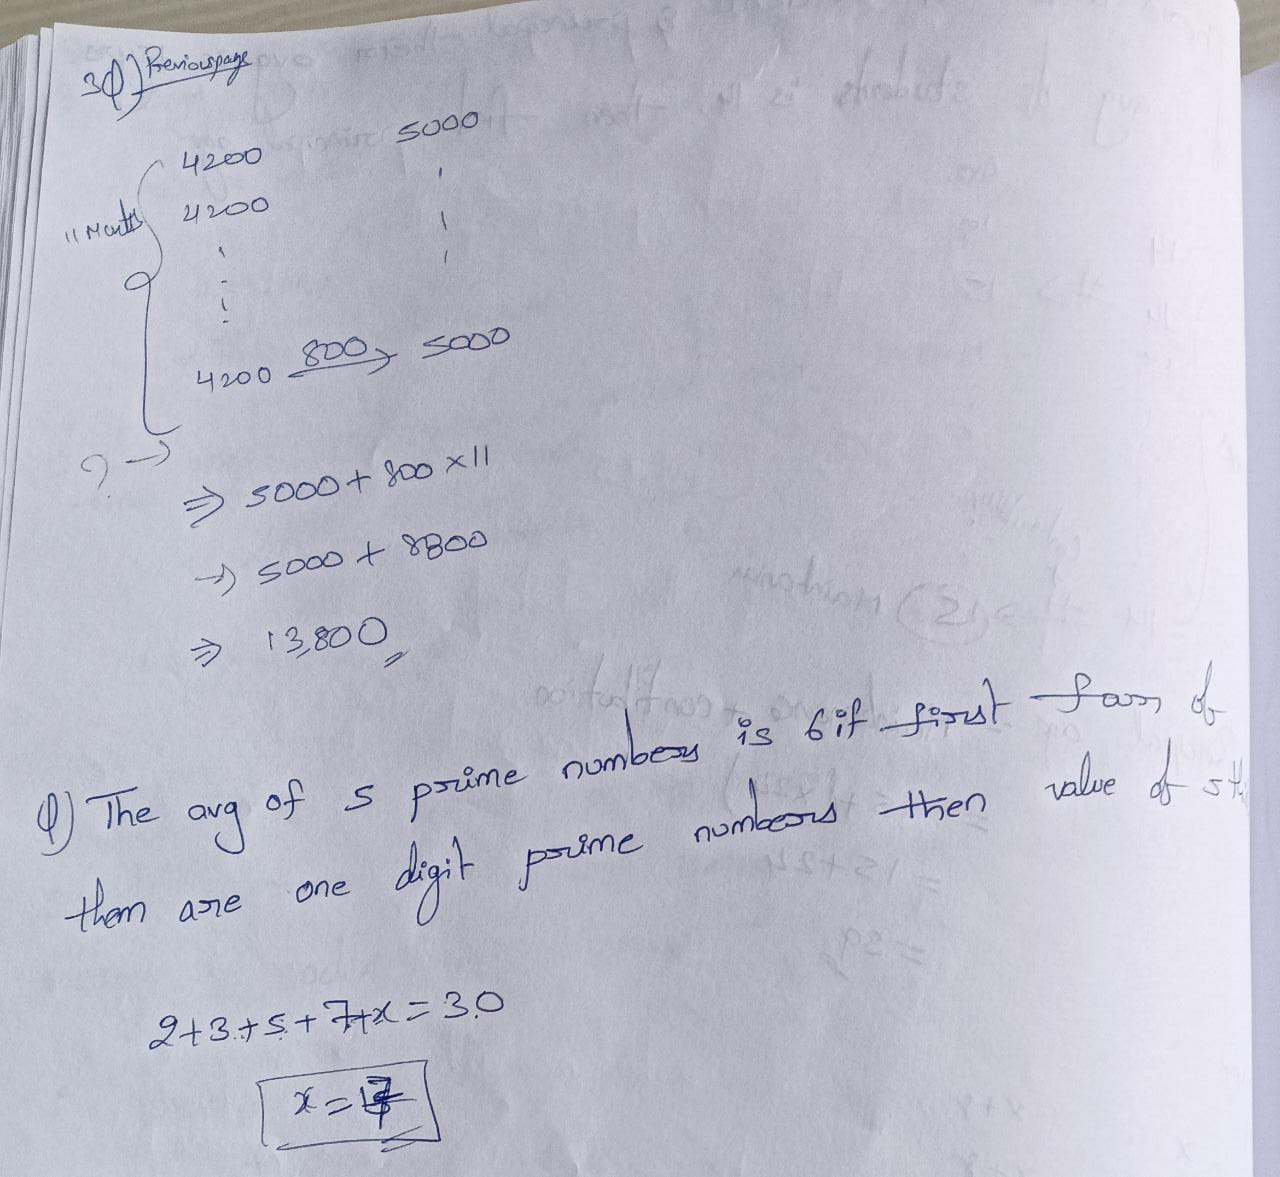 3Q) Previous page
4200 5000
11 Months 4200
4200 800→ 5000
? →
⇒ 5000 + 800 × 11
→ 5000 + 8800
⇒ 13,800
Q) The avg of 5 prime numbers is 6 if first four of
them are one digit prime numbers then value of 5th
2+3+5+7+x = 30
x =